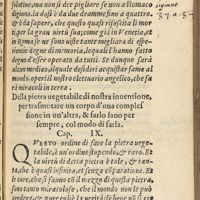 solutiue, ma non si dee pigliare se non a stomaco
digiuno. la dosi è da due dramme fino a quattro.
& è da sapere, che questo quasi rifuscita li mor
ti per la gran virtù sua; come già in Venetia, et
in Roma se ne sono uiste tante migliara di espe-
rienze degne di memoria, lequali è hanno fatto
largo di esser operato da tutti. Se dunque sarà
alcu medico, ilquale desideri aquistar fama al
mondo, operi il nostro elettuario angelico, che fa
rà miracoli in terra.
Della pietra uegetabile di nostra inuentione,
per trasmutare un corpo d'una complef
sione in un'altra, & farlo sano per
sempre, col modo di farla.
Cap. IX.
QVESTO ordine di fare la pietra uege
tabile, è un'ordine stupendo, & raro. Et
la uirtù di detta pietra è tale, & tan-
ta, che è quasi infinita, et senza cõparatione. Et
le cure, che si fanno cõ il mezzo di questa pietra,
sono tanto miracolose, che il mondo non le può